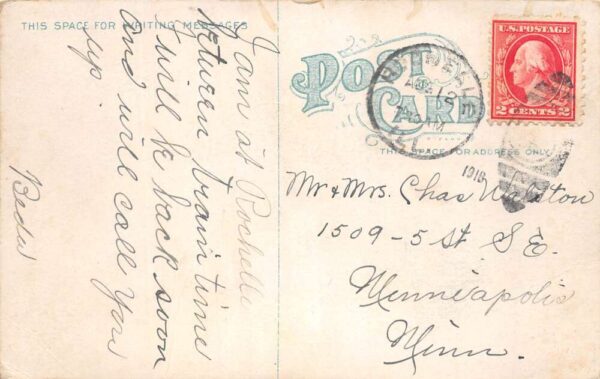 THIS SPACE FOR WRITING MESSAGES
I am at Rochelle
between train time
will be back soon
and will call You
up.
POST
CARD
U.S. POSTAGE
2 CENTS 2
ROCHELLE
12
AM
ILL.
1918
THIS SPACE FOR ADDRESS ONLY
Mr & Mrs. Chas
1509-5 St S.E.
Minneapolis
Minn.